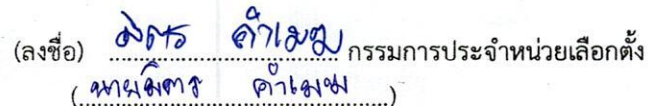 (ลงชื่อ) มิตร คำเมฆ กรรมการประจำหน่วยเลือกตั้ง
(นายมิตร คำเมฆ)